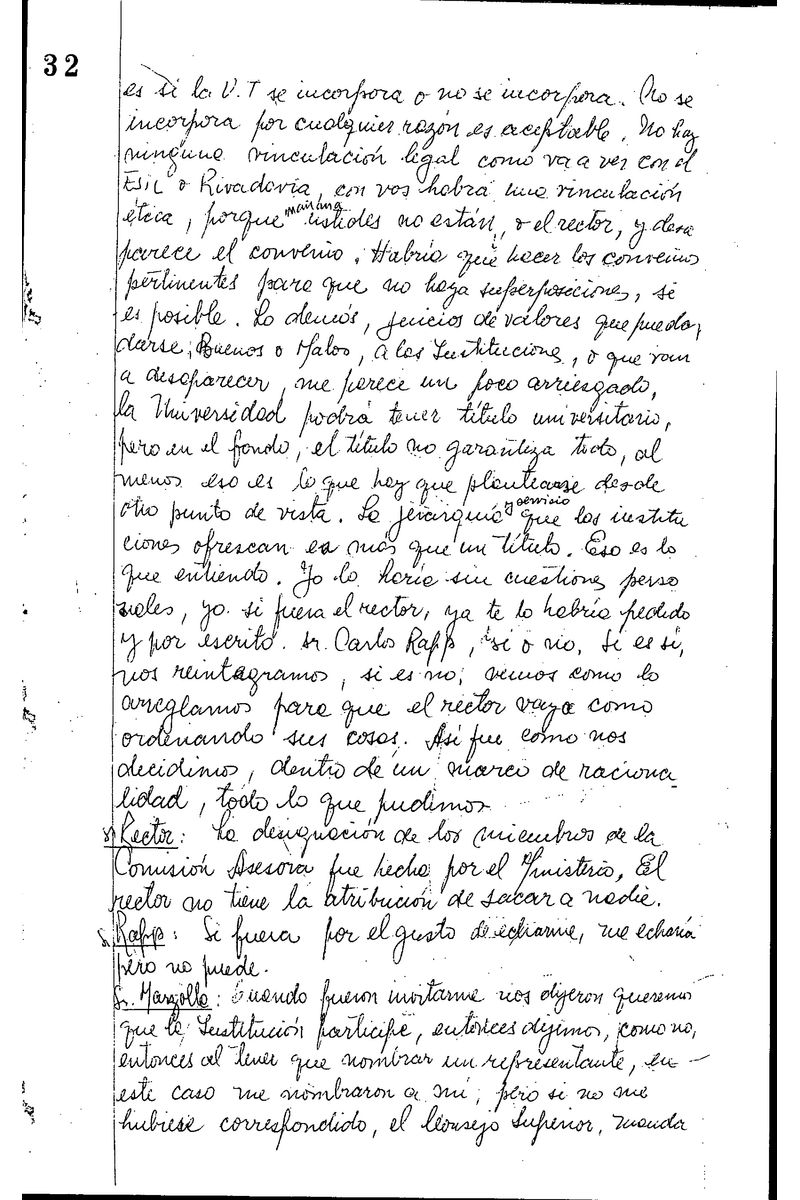 32
es si la U.T se incorpora o no se incorpora. No se
incorpora por cualquier razón es aceptable. No hay
ninguna vinculación legal como va a ver con el
ESIL o Rivadavia, con vos habrá una vinculación
ética, porque mañana ustedes no están, o el rector, y desa
parece el convenio. Habría que hacer los convenios
pertinentes para que no haya superposiciones, si
es posible. Lo demás, juicios de valores que puedan
darse, Buenos o Malos, a las Instituciones, o que van
a desaparecer, me parece un poco arriesgado,
la Universidad podrá tener título universitario,
pero en el fondo, el título no garantiza todo, al
menos eso es lo que hay que plantearse desde
otro punto de vista. La jerarquía y servicio que las institu
ciones ofrescan es más que un título. Eso es lo
que entiendo. Yo lo haría sin cuestiones perso
nales, yo si fuera el rector, ya te lo habría pedido
y por escrito. Sr. Carlos Rapp, si o no, Si es si,
nos reintegramos, si es no, vemos como lo
arreglamos para que el rector vaya como
ordenando sus cosas. Así fue como nos
decidimos, dentro de un marco de raciona
lidad, todo lo que pudimos
Sr Rector: La designación de los miembros de la
Comisión Asesora fue hecha por el Ministerio, El
rector no tiene la atribución de sacar a nadie.
S. Rapp: Si fuera por el gusto de echarme, me echaría
pero no puede.
Sr. Marzollo: Cuando fueron invitarme nos dijeron queremos
que la Institución participe, entonces dijimos, como no,
entonces al tener que nombrar un representante, en
este caso me nombraron a mí, pero si no me
hubiese correspondido, el Consejo Superior, manda